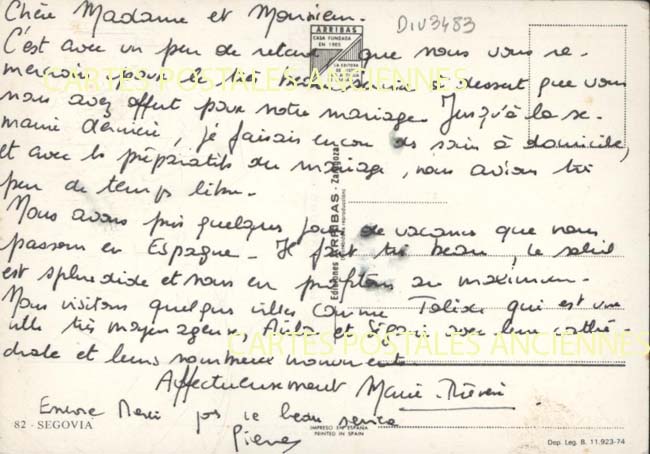 Chère Madame et Monsieur.
DIV3483
ARRIBAS
CASA FUNDADA
EN 1905
C'est avec un peu de retard que nous vous re-
mercions pour le très beau service à dessert que vous
nous avez offert pour notre mariage. Jusqu'à la se-
maine dernière, je faisais encore des soins à domicile,
et avec les préparatifs du mariage, nous avions très
peu de temps libre.
Nous avons pris quelques jours de vacances que nous
passons en Espagne. Il fait très beau, le soleil
est splendide et nous en profitons au maximum.
Nous visitons quelques villes comme Tolède qui est une
ville très moyenageuse, Avila et Ségovie avec leur cathé-
drale et leurs nombreux monuments.
Affectueusement Marie-
Encore Merci pour ce beau service
Pierre
82 - SEGOVIA
IMPRESO EN ESPAÑA
PRINTED IN SPAIN
Dep. Leg. B. 11.923-74
Ediciones ARRIBAS - Zaragoza
CARTES POSTALES ANCIENNES
CARTES POSTALES ANCIENNES